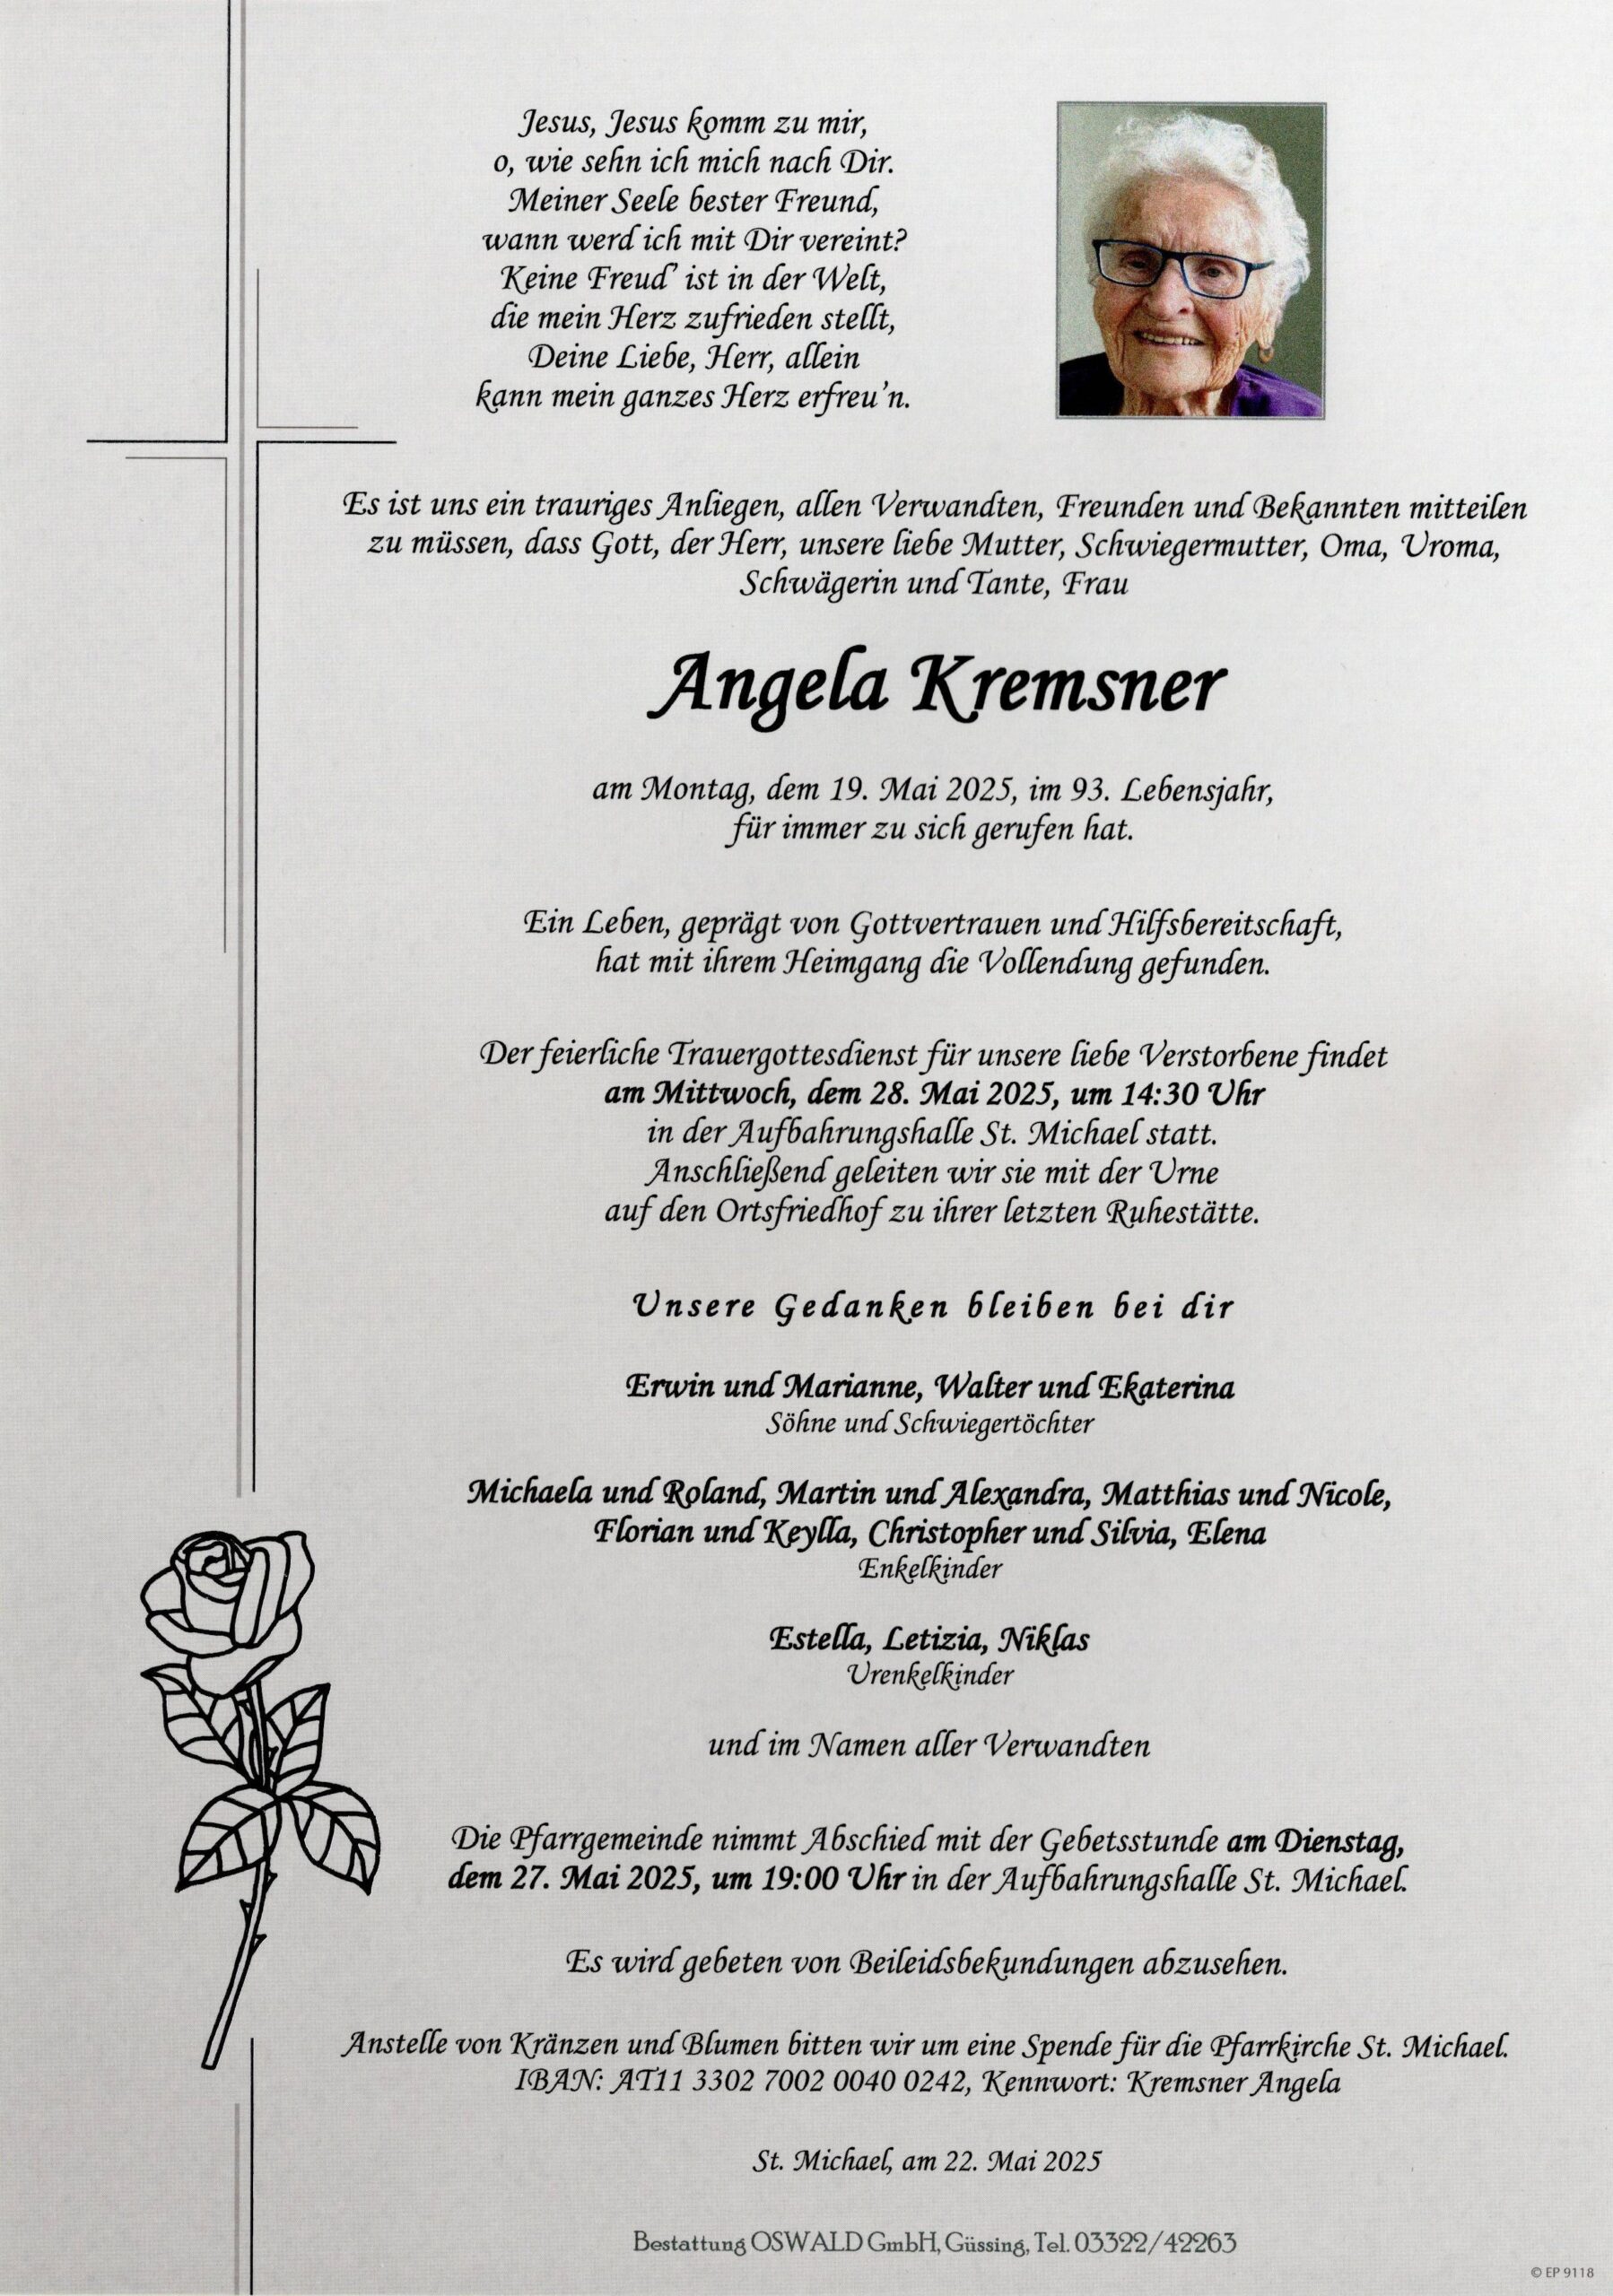 Jesus, Jesus komm zu mir,
o, wie sehn ich mich nach Dir.
Meiner Seele bester Freund,
wann werd ich mit Dir vereint?
Keine Freud’ ist in der Welt,
die mein Herz zufrieden stellt,
Deine Liebe, Herr, allein
kann mein ganzes Herz erfreu’n.
Es ist uns ein trauriges Anliegen, allen Verwandten, Freunden und Bekannten mitteilen
zu müssen, dass Gott, der Herr, unsere liebe Mutter, Schwiegermutter, Oma, Uroma,
Schwägerin und Tante, Frau
Angela Kremsner
am Montag, dem 19. Mai 2025, im 93. Lebensjahr,
für immer zu sich gerufen hat.
Ein Leben, geprägt von Gottvertrauen und Hilfsbereitschaft,
hat mit ihrem Heimgang die Vollendung gefunden.
Der feierliche Trauergottesdienst für unsere liebe Verstorbene findet
am Mittwoch, dem 28. Mai 2025, um 14:30 Uhr
in der Aufbahrungshalle St. Michael statt.
Anschließend geleiten wir sie mit der Urne
auf den Ortsfriedhof zu ihrer letzten Ruhestätte.
Unsere Gedanken bleiben bei dir
Erwin und Marianne, Walter und Ekaterina
Söhne und Schwiegertöchter
Michaela und Roland, Martin und Alexandra, Matthias und Nicole,
Florian und Keylla, Christopher und Silvia, Elena
Enkelkinder
Estella, Letizia, Niklas
Urenkelkinder
und im Namen aller Verwandten
Die Pfarrgemeinde nimmt Abschied mit der Gebetsstunde am Dienstag,
dem 27. Mai 2025, um 19:00 Uhr in der Aufbahrungshalle St. Michael.
Es wird gebeten von Beileidsbekundungen abzusehen.
Anstelle von Kränzen und Blumen bitten wir um eine Spende für die Pfarrkirche St. Michael.
IBAN: AT11 3302 7002 0040 0242, Kennwort: Kremsner Angela
St. Michael, am 22. Mai 2025
Bestattung OSWALD GmbH, Güssing, Tel. 03322/42263
© EP 9118